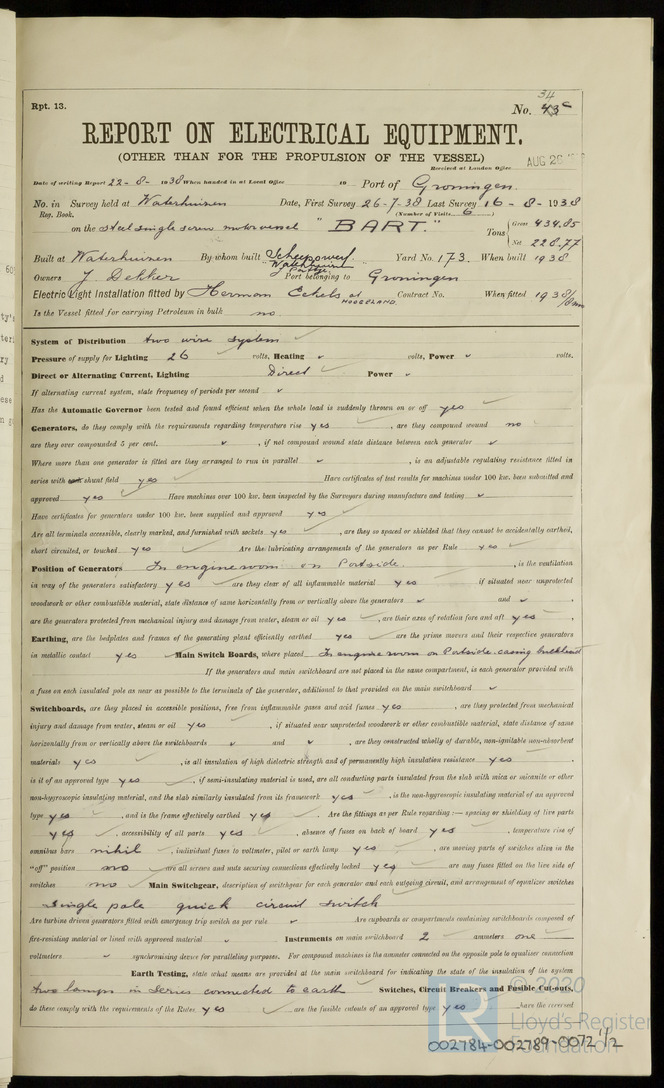 34
Rpt. 13. No. 43c
REPORT ON ELECTRICAL EQUIPMENT.
(OTHER THAN FOR THE PROPULSION OF THE VESSEL)
Received at London Office AUG 26
Date of writing Report 22-8-1938 When handed in at Local Office 19 Port of Groningen.
No. in Survey held at Waterhuizen Date, First Survey 26-7-38 Last Survey 16-8-1938
Reg. Book. (Number of Visits 6)
on the steel single screw motorvessel "BART." Tons Gross 434.85
Net 228.77
Built at Waterhuizen By whom built Scheepswerf Waterhuizen Yard No. 173. When built 1938
Owners J. Dekker Port belonging to Groningen
Electric Light Installation fitted by Herman Eekels at HOOGEZAND Contract No. When fitted 1938
Is the Vessel fitted for carrying Petroleum in bulk no.
System of Distribution two wire system
Pressure of supply for Lighting 26 volts, Heating volts, Power volts.
Direct or Alternating Current, Lighting Direct Power
If alternating current system, state frequency of periods per second
Has the Automatic Governor been tested and found efficient when the whole load is suddenly thrown on or off yes
Generators, do they comply with the requirements regarding temperature rise yes, are they compound wound no
are they over compounded 5 per cent., if not compound wound state distance between each generator
Where more than one generator is fitted are they arranged to run in parallel, is an adjustable regulating resistance fitted in
series with each shunt field yes Have certificates of test results for machines under 100 kw. been submitted and
approved yes Have machines over 100 kw. been inspected by the Surveyors during manufacture and testing
Have certificates for generators under 100 kw. been supplied and approved yes
Are all terminals accessible, clearly marked, and furnished with sockets yes, are they so spaced or shielded that they cannot be accidentally earthed,
short circuited, or touched yes Are the lubricating arrangements of the generators as per Rule yes
Position of Generators In engineroom on Portside., is the ventilation
in way of the generators satisfactory yes are they clear of all inflammable material yes if situated near unprotected
woodwork or other combustible material, state distance of same horizontally from or vertically above the generators and
are the generators protected from mechanical injury and damage from water, steam or oil yes, are their axes of rotation fore and aft yes.
Earthing, are the bedplates and frames of the generating plant efficiently earthed yes are the prime movers and their respective generators
in metallic contact yes Main Switch Boards, where placed In engineroom on Portside casing bulkhead
If the generators and main switchboard are not placed in the same compartment, is each generator provided with
a fuse on each insulated pole as near as possible to the terminals of the generator, additional to that provided on the main switchboard
Switchboards, are they placed in accessible positions, free from inflammable gases and acid fumes yes, are they protected from mechanical
injury and damage from water, steam or oil yes, if situated near unprotected woodwork or other combustible material, state distance of same
horizontally from or vertically above the switchboards and, are they constructed wholly of durable, non-ignitable non-absorbent
materials yes, is all insulation of high dielectric strength and of permanently high insulation resistance yes.
is it of an approved type yes, if semi-insulating material is used, are all conducting parts insulated from the slab with mica or micanite or other
non-hygroscopic insulating material, and the slab similarly insulated from its framework yes, is the non-hygroscopic insulating material of an approved
type yes, and is the frame effectively earthed yes. Are the fittings as per Rule regarding:— spacing or shielding of live parts
yes, accessibility of all parts yes, absence of fuses on back of board yes, temperature rise of
omnibus bars nihil, individual fuses to voltmeter, pilot or earth lamp yes, are moving parts of switches alive in the
"off" position no are all screws and nuts securing connections effectively locked yes are any fuses fitted on the live side of
switches no Main Switchgear, description of switchgear for each generator and each outgoing circuit, and arrangement of equalizer switches
single pole quick circuit switch
Are turbine driven generators fitted with emergency trip switch as per rule Are cupboards or compartments containing switchboards composed of
fire-resisting material or lined with approved material Instruments on main switchboard 2 ammeters one
voltmeters synchronising device for paralleling purposes. For compound machines is the ammeter connected on the opposite pole to equaliser connection
Earth Testing, state what means are provided at the main switchboard for indicating the state of the insulation of the system
two lamps in series connected to earth Switches, Circuit Breakers and Fusible Cut-outs,
do these comply with the requirements of the Rules yes, are the fusible cutouts of an approved type yes, have the reversed
© 2020
Lloyd's Register
Foundation
002784-002789-0072 1/2